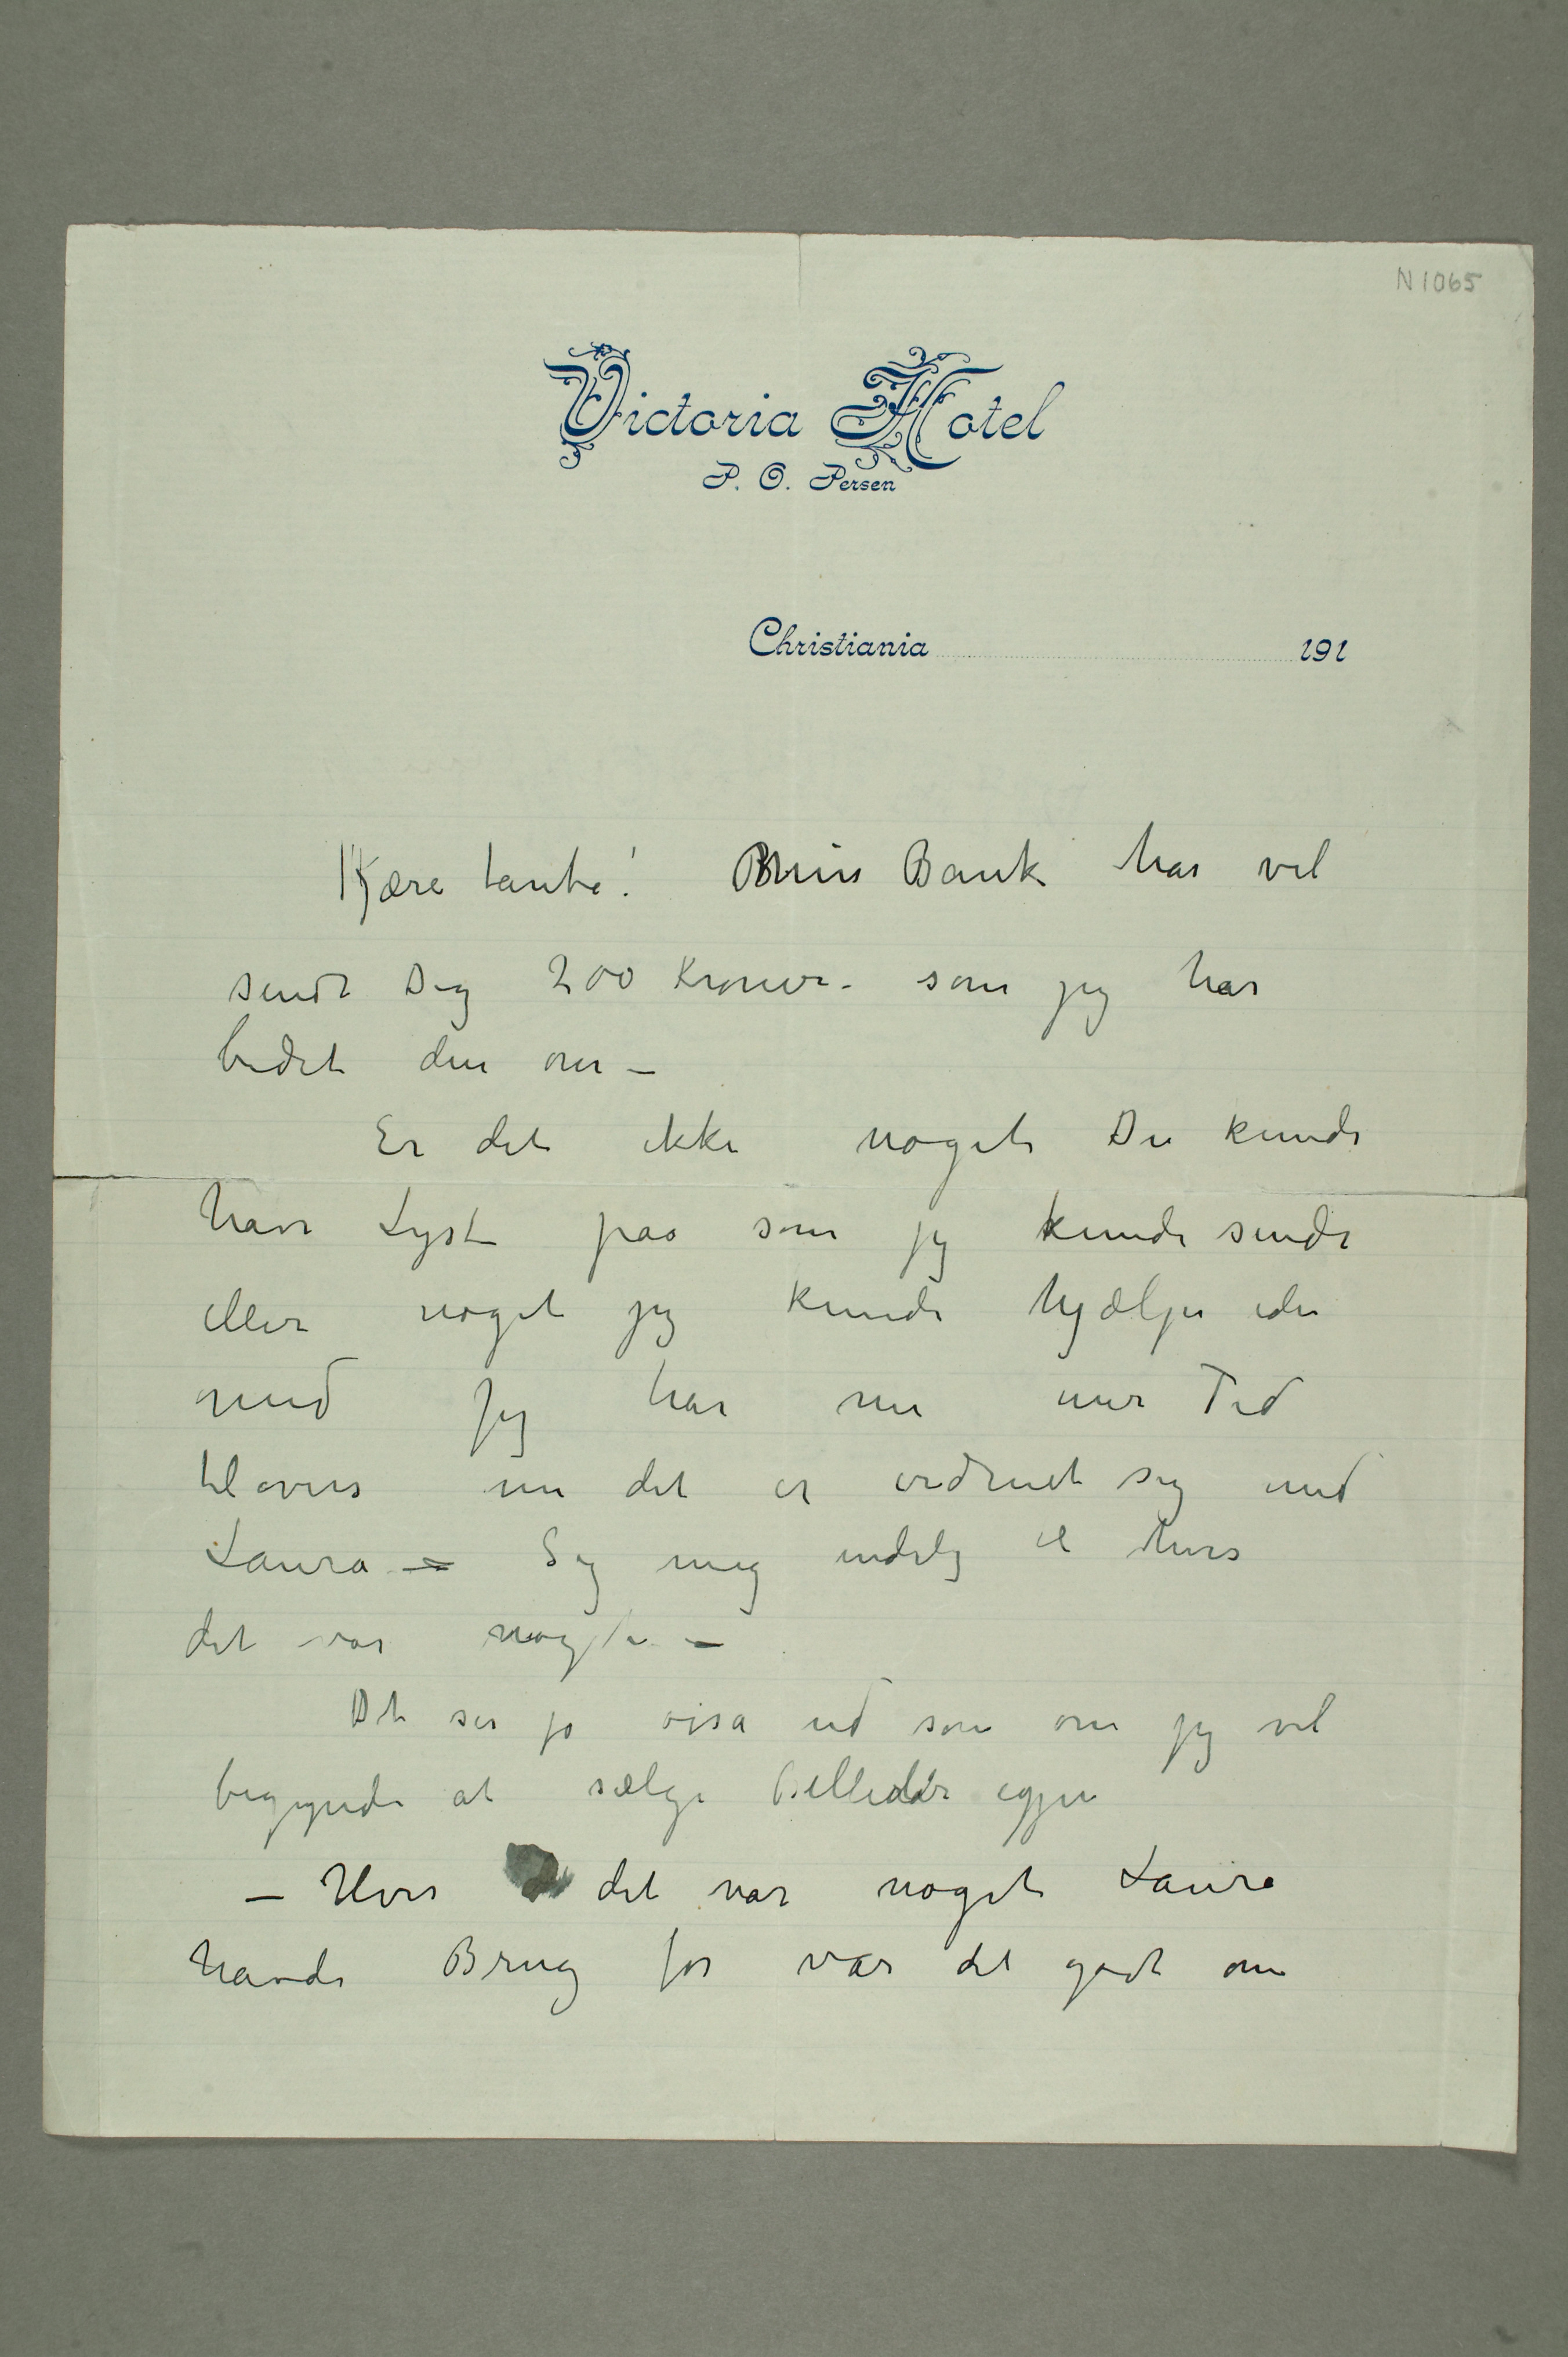 N1065
Victoria Hotel
P. O. Persen
Christiania 191
Kjære tante! Min Bank har vel
sendt Dig 200 Kroner – som jeg har
bedet den om –
Er det ikke noget Du kunde
have Lyst paa som jeg kunde sende
eller noget jeg kunde hjælpe eder
med Jeg har nu mer Tid
tilovers nu det er ordnet sig med
Laura – Sig mig endelig til hvis
det var noget –
Det ser jo ossa ud som om jeg vil
begynde at sælge Billeder igjen
– Hvis det var noget Laura
havde Brug for var det godt om